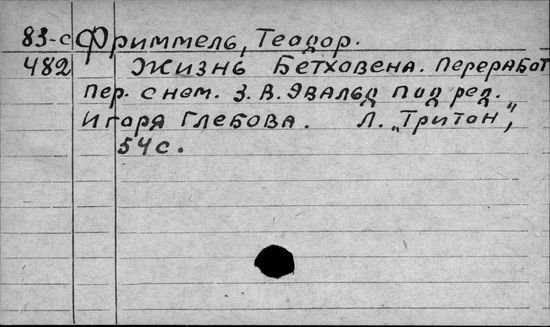 83-с Фриммель, Теодор.
482 Жизнь Бетховена. Переработ
пер. с нем. З. В. Эвальд под ред.
Игоря Глебова. Л. „Тритон",
54 с.